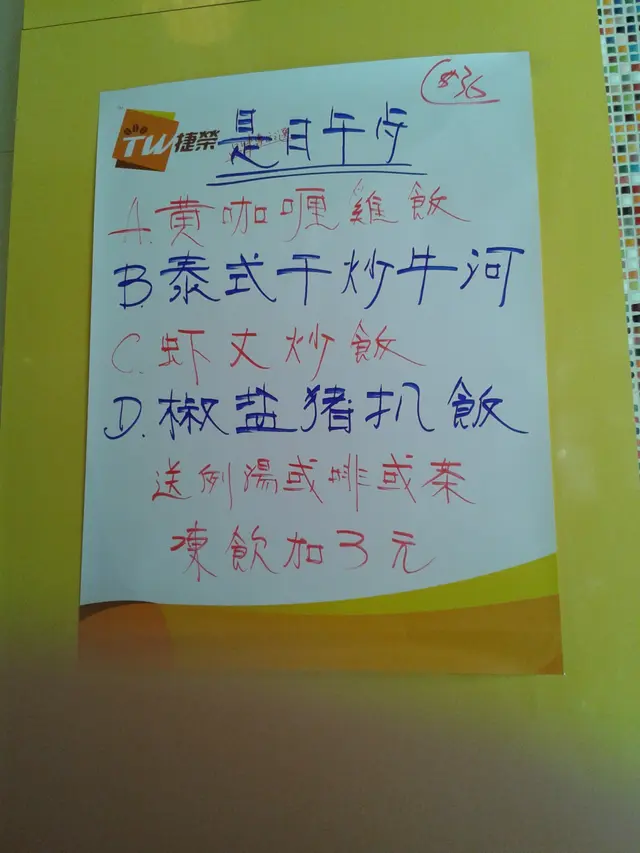 $36
TW捷榮
是日午市
A.黄咖喱雞飯
B.泰式干炒牛河
C.虾丈炒飯
D.椒盐猪扒飯
送例湯或啡或茶
凍飲加3元